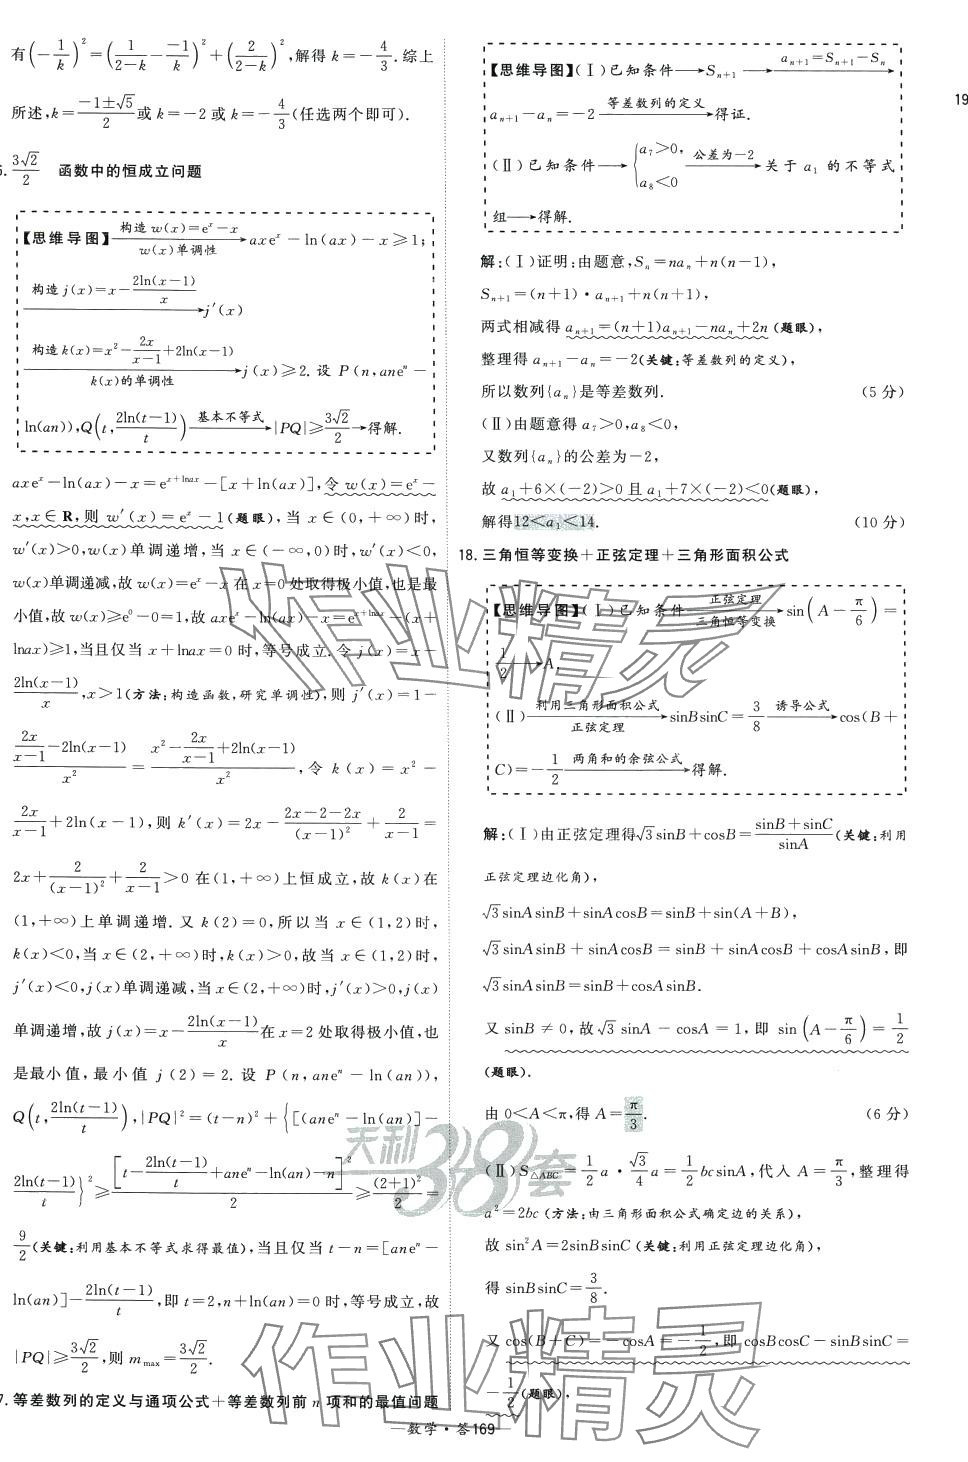 有(-1/k)²=(1/(2-k)-(-1)/k)²+(2/(2-k))²,解得k=-4/3.综上
所述,k=(-1±√5)/2或k=-2或k=-4/3(任选两个即可).
6. 3√2/2 函数中的恒成立问题
【思维导图】 构造w(x)=eˣ-x / w(x)单调性 → axeˣ-ln(ax)-x≥1;
构造j(x)=x-2ln(x-1)/x → j′(x)
构造k(x)=x²-2x/(x-1)+2ln(x-1) / k(x)的单调性 → j(x)≥2.设P(n,aneⁿ-
ln(an)),Q(t,2ln(t-1)/t) 基本不等式→ |PQ|≥3√2/2→得解.
axeˣ-ln(ax)-x=e^(x+lnax)-[x+ln(ax)],令w(x)=eˣ-
x,x∈R,则w′(x)=eˣ-1(题眼),当x∈(0,+∞)时,
w′(x)>0,w(x)单调递增,当x∈(-∞,0)时,w′(x)<0,
w(x)单调递减,故w(x)=eˣ-x在x=0处取得极小值,也是最
小值,故w(x)≥e⁰-0=1,故axeˣ-ln(ax)-x=e^(x+lnax)-(x+
lnax)≥1,当且仅当x+lnax=0时,等号成立.令j(x)=x-
2ln(x-1)/x,x>1(方法:构造函数,研究单调性),则j′(x)=1-
(2x/(x-1)-2ln(x-1))/x²=(x²-2x/(x-1)+2ln(x-1))/x²,令k(x)=x²-
2x/(x-1)+2ln(x-1),则k′(x)=2x-(2x-2-2x)/(x-1)²+2/(x-1)=
2x+2/(x-1)²+2/(x-1)>0在(1,+∞)上恒成立,故k(x)在
(1,+∞)上单调递增.又k(2)=0,所以当x∈(1,2)时,
k(x)<0,当x∈(2,+∞)时,k(x)>0,故当x∈(1,2)时,
j′(x)<0,j(x)单调递减,当x∈(2,+∞)时,j′(x)>0,j(x)
单调递增,故j(x)=x-2ln(x-1)/x在x=2处取得极小值,也
是最小值,最小值j(2)=2.设P(n,aneⁿ-ln(an)),
Q(t,2ln(t-1)/t),|PQ|²=(t-n)²+{[(aneⁿ-ln(an)]-
2ln(t-1)/t}²≥[t-2ln(t-1)/t+aneⁿ-ln(an)-n]²/2≥(2+1)²/2=
9/2(关键:利用基本不等式求得最值),当且仅当t-n=[aneⁿ-
ln(an)]-2ln(t-1)/t,即t=2,n+ln(an)=0时,等号成立,故
|PQ|≥3√2/2,则m_max=3√2/2.
7. 等差数列的定义与通项公式+等差数列前n项和的最值问题
【思维导图】(Ⅰ)已知条件→Sₙ₊₁ aₙ₊₁=Sₙ₊₁-Sₙ→
aₙ₊₁-aₙ=-2 等差数列的定义→得证.
(Ⅱ)已知条件→{a₇>0, a₈<0 公差为-2→关于a₁的不等式
组→得解.
解:(Ⅰ)证明:由题意,Sₙ=naₙ+n(n-1),
Sₙ₊₁=(n+1)·aₙ₊₁+n(n+1),
两式相减得aₙ₊₁=(n+1)aₙ₊₁-naₙ+2n(题眼),
整理得aₙ₊₁-aₙ=-2(关键:等差数列的定义),
所以数列{aₙ}是等差数列. (5分)
(Ⅱ)由题意得a₇>0,a₈<0,
又数列{aₙ}的公差为-2,
故a₁+6×(-2)>0且a₁+7×(-2)<0(题眼),
解得12<a₁<14. (10分)
18. 三角恒等变换+正弦定理+三角形面积公式
【思维导图】(Ⅰ)已知条件 正弦定理 / 三角恒等变换 → sin(A-π/6)=
1/2→A.
(Ⅱ) 利用三角形面积公式 / 正弦定理 → sinBsinC=3/8 诱导公式→cos(B+
C)=-1/2 两角和的余弦公式→得解.
解:(Ⅰ)由正弦定理得√3sinB+cosB=(sinB+sinC)/sinA(关键:利用
正弦定理边化角),
√3sinAsinB+sinAcosB=sinB+sin(A+B),
√3sinAsinB+sinAcosB=sinB+sinAcosB+cosAsinB,即
√3sinAsinB=sinB+cosAsinB.
又sinB≠0,故√3sinA-cosA=1,即sin(A-π/6)=1/2
(题眼).
由0<A<π,得A=π/3. (6分)
(Ⅱ)S△ABC=1/2a·√3/4a=1/2bcsinA,代入A=π/3,整理得
a²=2bc(方法:由三角形面积公式确定边的关系),
故sin²A=2sinBsinC(关键:利用正弦定理边化角),
得sinBsinC=3/8.
又cos(B+C)=-cosA=-1/2,即cosBcosC-sinBsinC=
-1/2(题眼),
19
天利38套
作业精灵
作业精灵
—数学·答169—